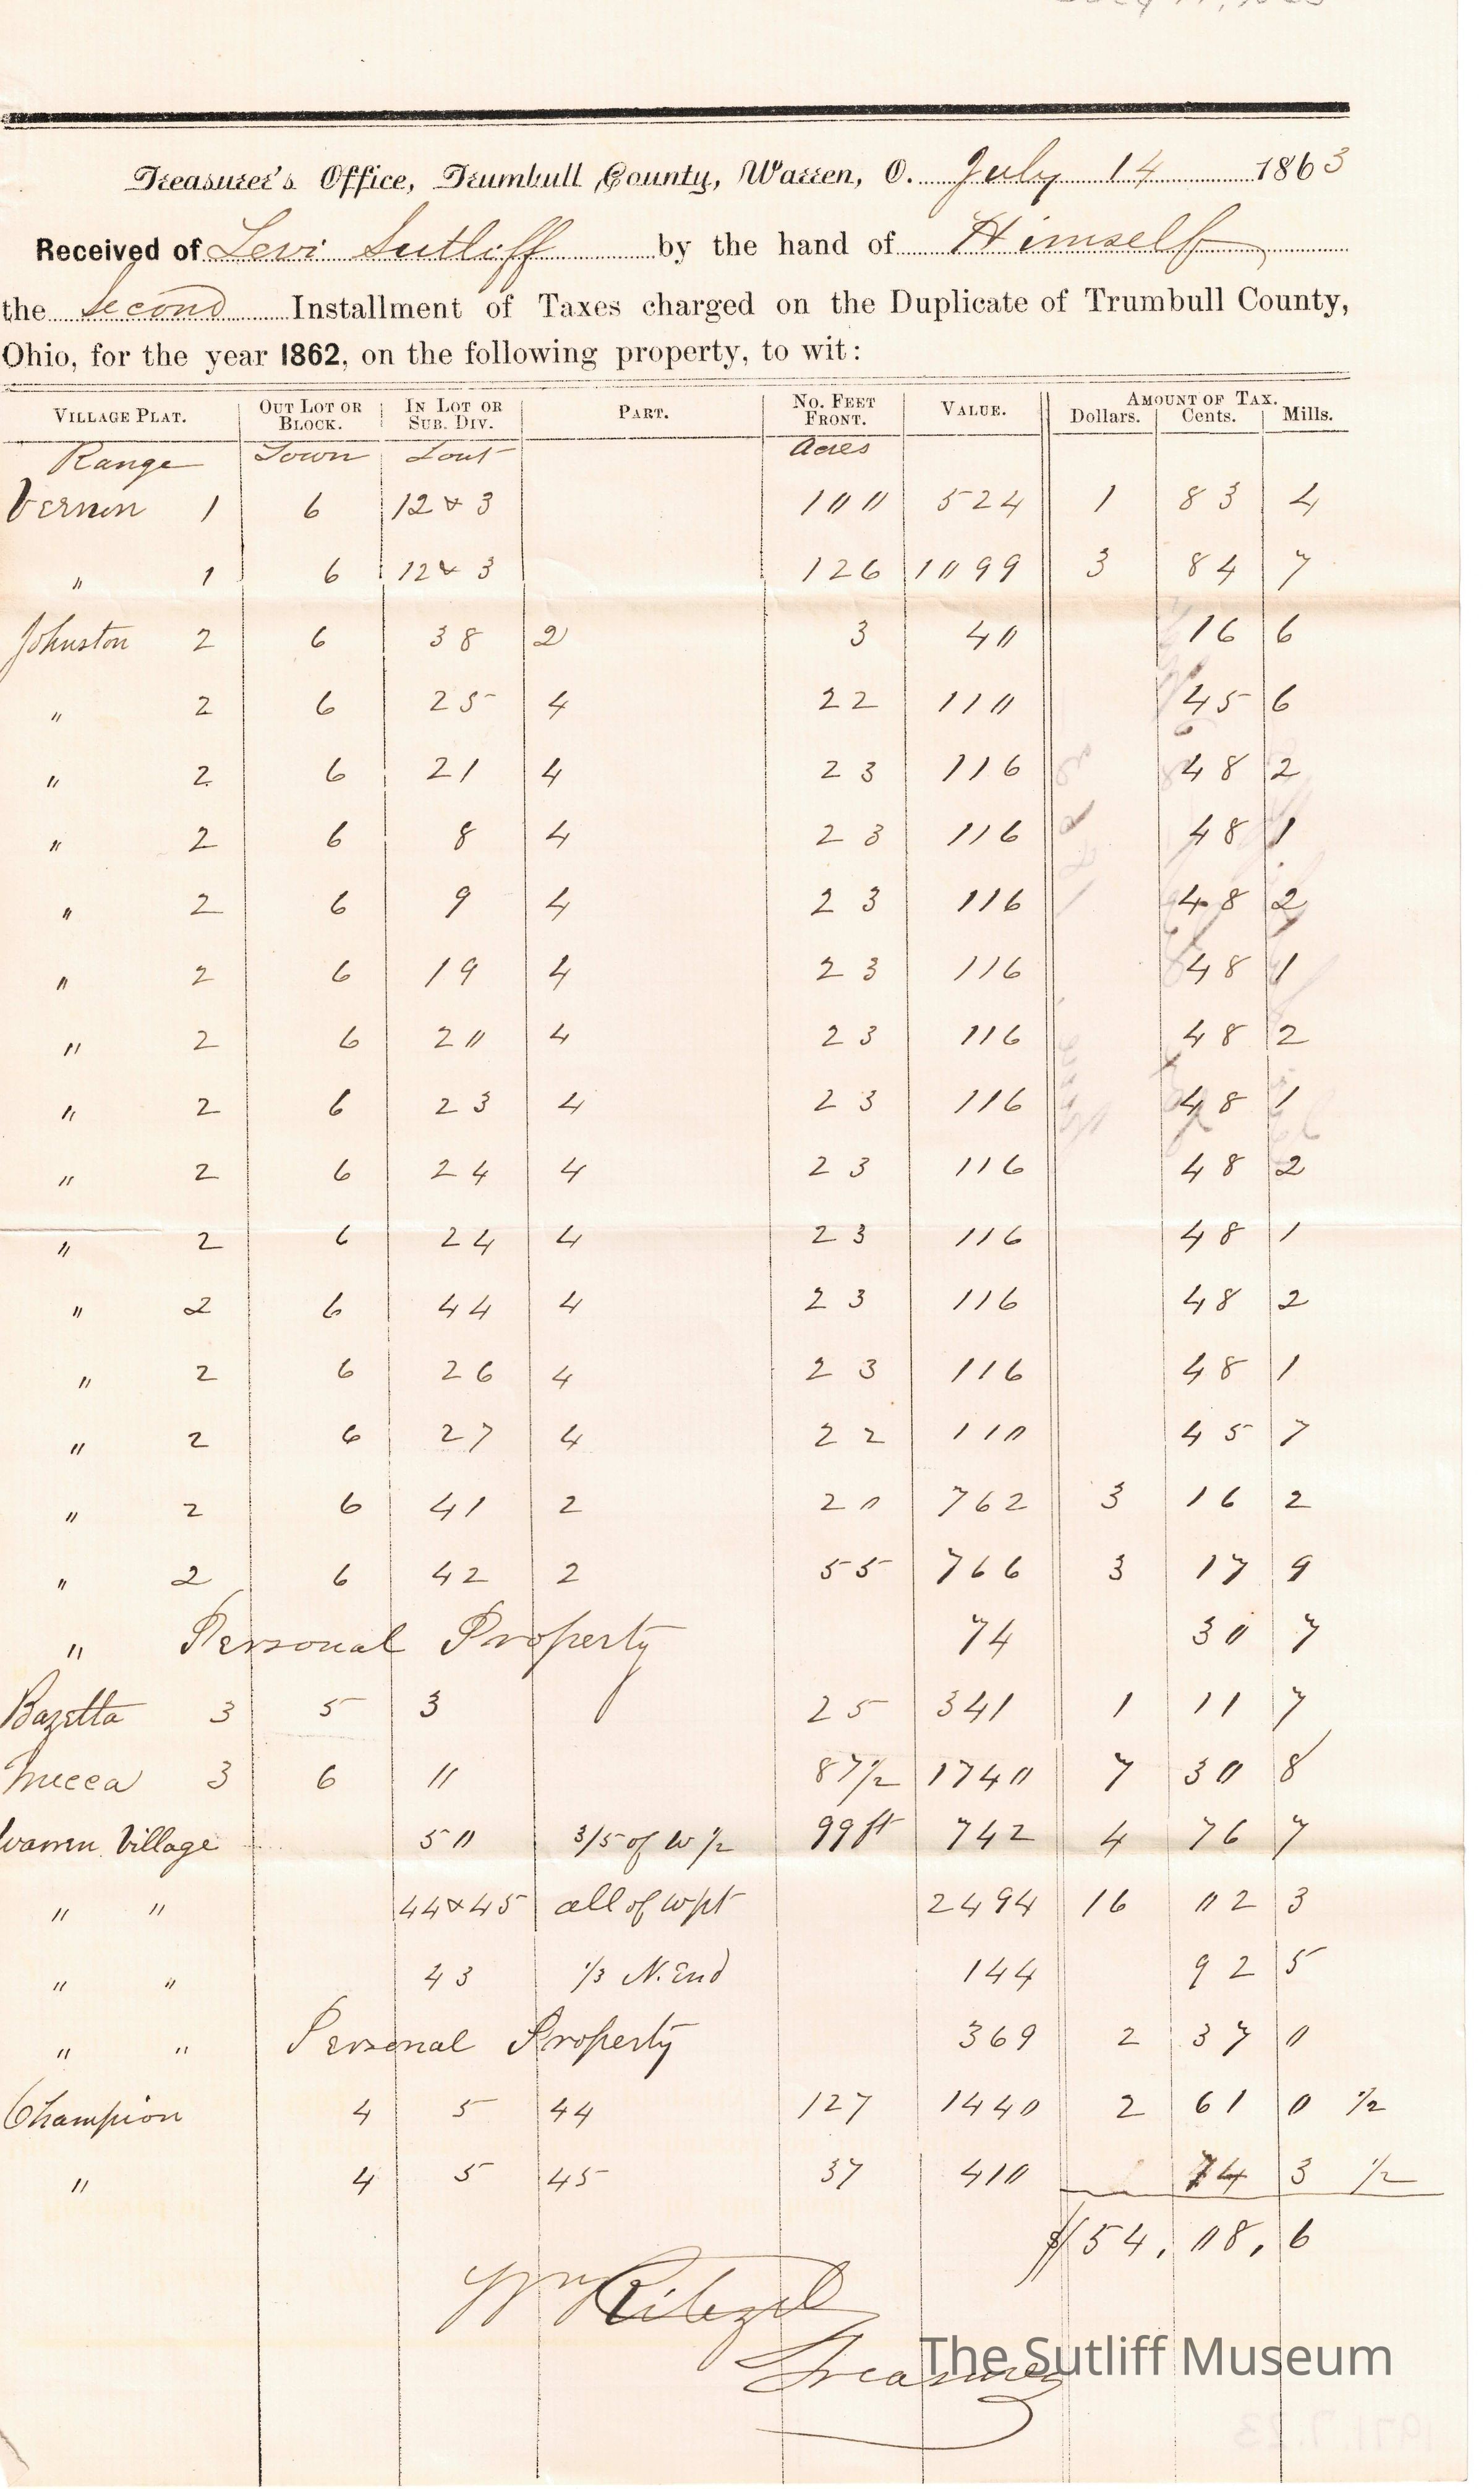 Treasurer's Office, Trumbull County, Warren, O. July 14 1863
Received of Levi Sutliff by the hand of Himself
the Second Installment of Taxes charged on the Duplicate of Trumbull County,
Ohio, for the year 1862, on the following property, to wit:
VILLAGE PLAT. OUT LOT OR BLOCK. IN LOT OR SUB. DIV. PART. NO. FEET FRONT. VALUE. AMOUNT OF TAX. Dollars. Cents. Mills.
Range Town Lout Acres
Vernon 1 6 12 & 3 100 524 1 83 4
" 1 6 12 & 3 126 1099 3 84 7
Johnston 2 6 38 2 3 40 16 6
" 2 6 25 4 22 110 45 6
" 2 6 21 4 23 116 48 2
" 2 6 8 4 23 116 48 1
" 2 6 9 4 23 116 48 2
" 2 6 19 4 23 116 48 1
" 2 6 20 4 23 116 48 2
" 2 6 23 4 23 116 48 1
" 2 6 24 4 23 116 48 2
" 2 6 24 4 23 116 48 1
" 2 6 44 4 23 116 48 2
" 2 6 26 4 23 116 48 1
" 2 6 27 4 22 110 45 7
" 2 6 41 2 20 762 3 16 2
" 2 6 42 2 55 766 3 17 9
" Personal Property 74 30 7
Bazetta 3 5 3 25 341 1 11 7
Mecca 3 6 11 87 1/2 1740 7 30 8
Warren Village 50 3/5 of W 1/2 99 ft 742 4 76 7
" " 44 & 45 all of w pt 2494 16 02 3
" " 43 1/3 N. End 144 92 5
" " Personal Property 369 2 37 0
Champion 4 5 44 127 1440 2 61 0 1/2
" 4 5 45 37 410 74 3 1/2
$54, 08, 6
Wm Ritezel
Treasurer
The Sutliff Museum